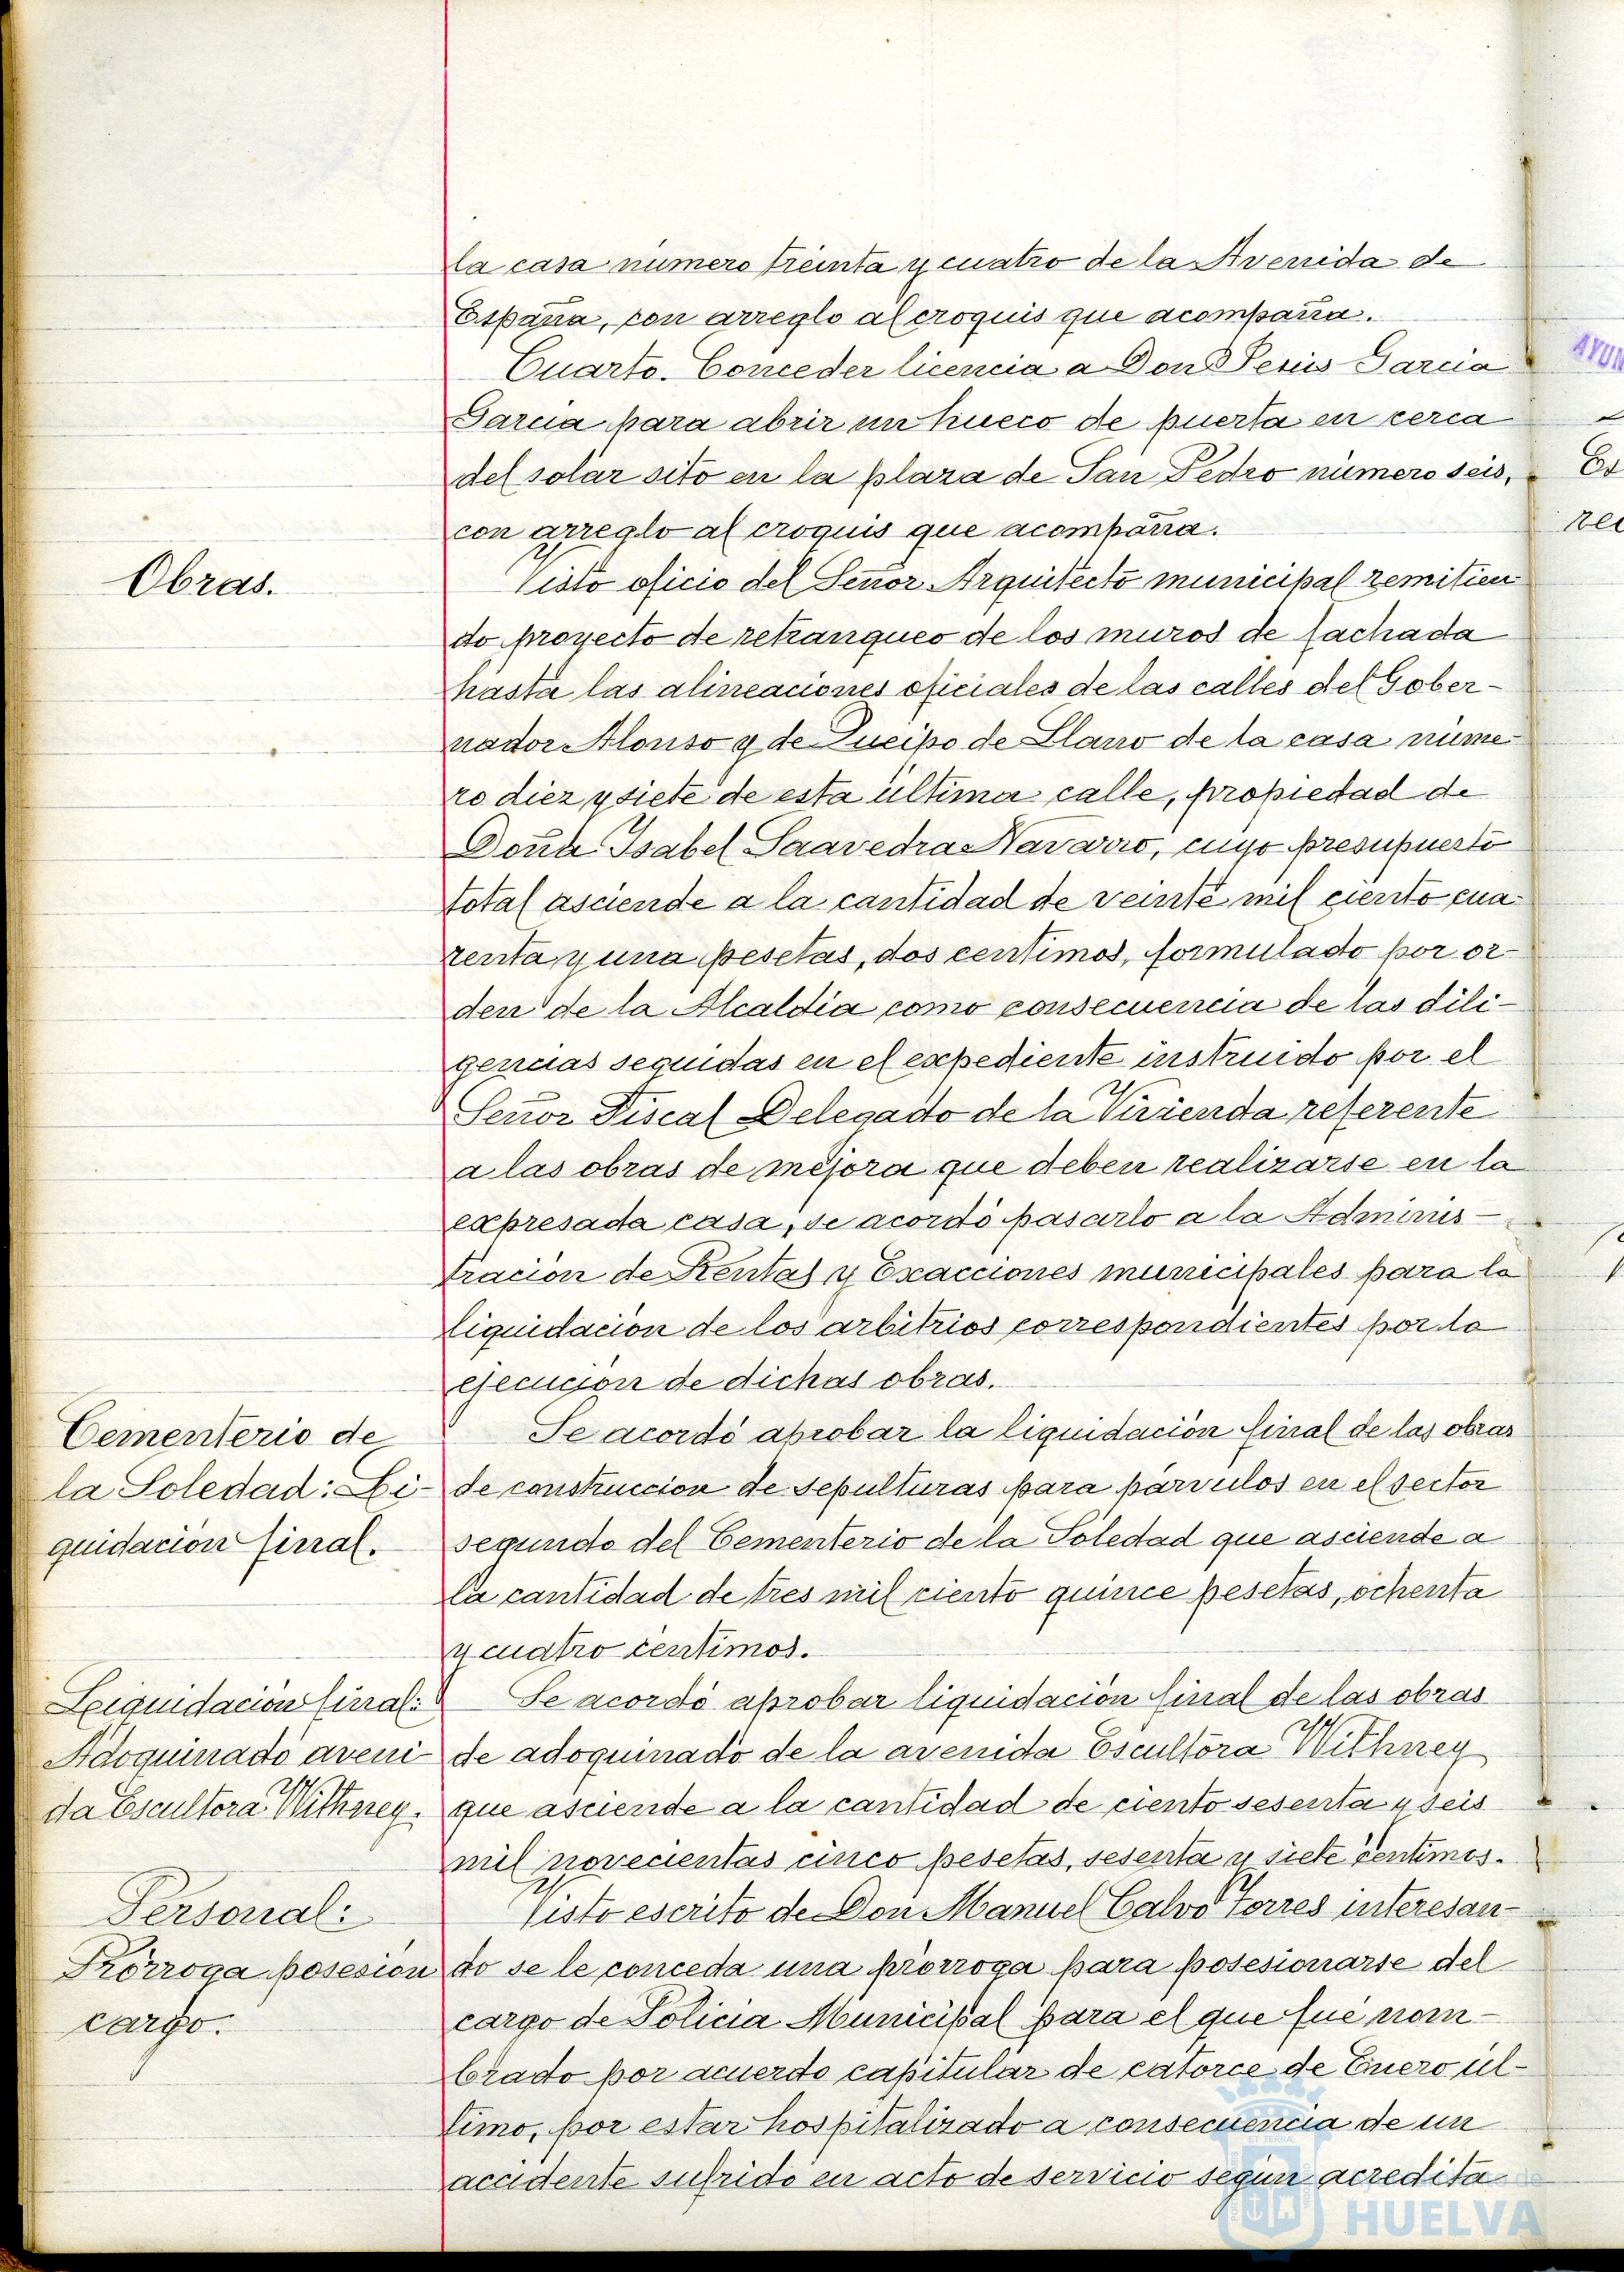 la casa número treinta y cuatro de la Avenida de
España, con arreglo al croquis que acompaña.
Cuarto. Conceder licencia a Don García
García para abrir un hueco de puerta en cerca
del solar sito en la plaza de San Pedro número seis,
con arreglo al croquis que acompaña.
Obras.
Visto oficio del Señor Arquitecto municipal remitien
do proyecto de retranqueo de los muros de fachada
hasta las alineaciones oficiales de las calles del Gober-
nador Alonso y de Queipo de Llano de la casa núme-
ro diez y siete de esta última calle, propiedad de
Doña Isabel Saavedra Navarro, cuyo presupuesto
total asciende a la cantidad de veinte mil ciento cua-
renta y una pesetas, dos centimos, formulado por or-
den de la Alcaldía como consecuencia de las dili-
gencias seguidas en el expediente instruido por el
Señor Fiscal Delegado de la Vivienda referente
a las obras de mejora que deben realizarse en la
expresada casa, se acordó pasarlo a la Adminis-
tración de Rentas y Exacciones municipales para la
liquidación de los arbitrios correspondientes por la
ejecución de dichas obras.
Cementerio de
la Soledad: Li-
quidación final.
Se acordó aprobar la liquidación final de las obras
de construccion de sepulturas para párvulos en el sector
segundo del Cementerio de la Soledad que asciende a
la cantidad de tres mil ciento quince pesetas, ochenta
y cuatro céntimos.
Liquidación final:
Adoquinado aveni-
da Escultora Withney.
Se acordó aprobar liquidación final de las obras
de adoquinado de la avenida Escultora Withney
que asciende a la cantidad de ciento sesenta y seis
mil novecientas cinco pesetas, sesenta y siete céntimos.
Personal:
Prórroga posesión
cargo.
Visto escrito de Don Manuel Calvo Torres interesan-
do se le conceda una prórroga para posesionarse del
cargo de Policia Municipal para el que fué nom-
brado por acuerdo capitular de catorce de Enero úl-
timo, por estar hospitalizado a consecuencia de un
accidente sufrido en acto de servicio según acredita
AYUN
HUELVA